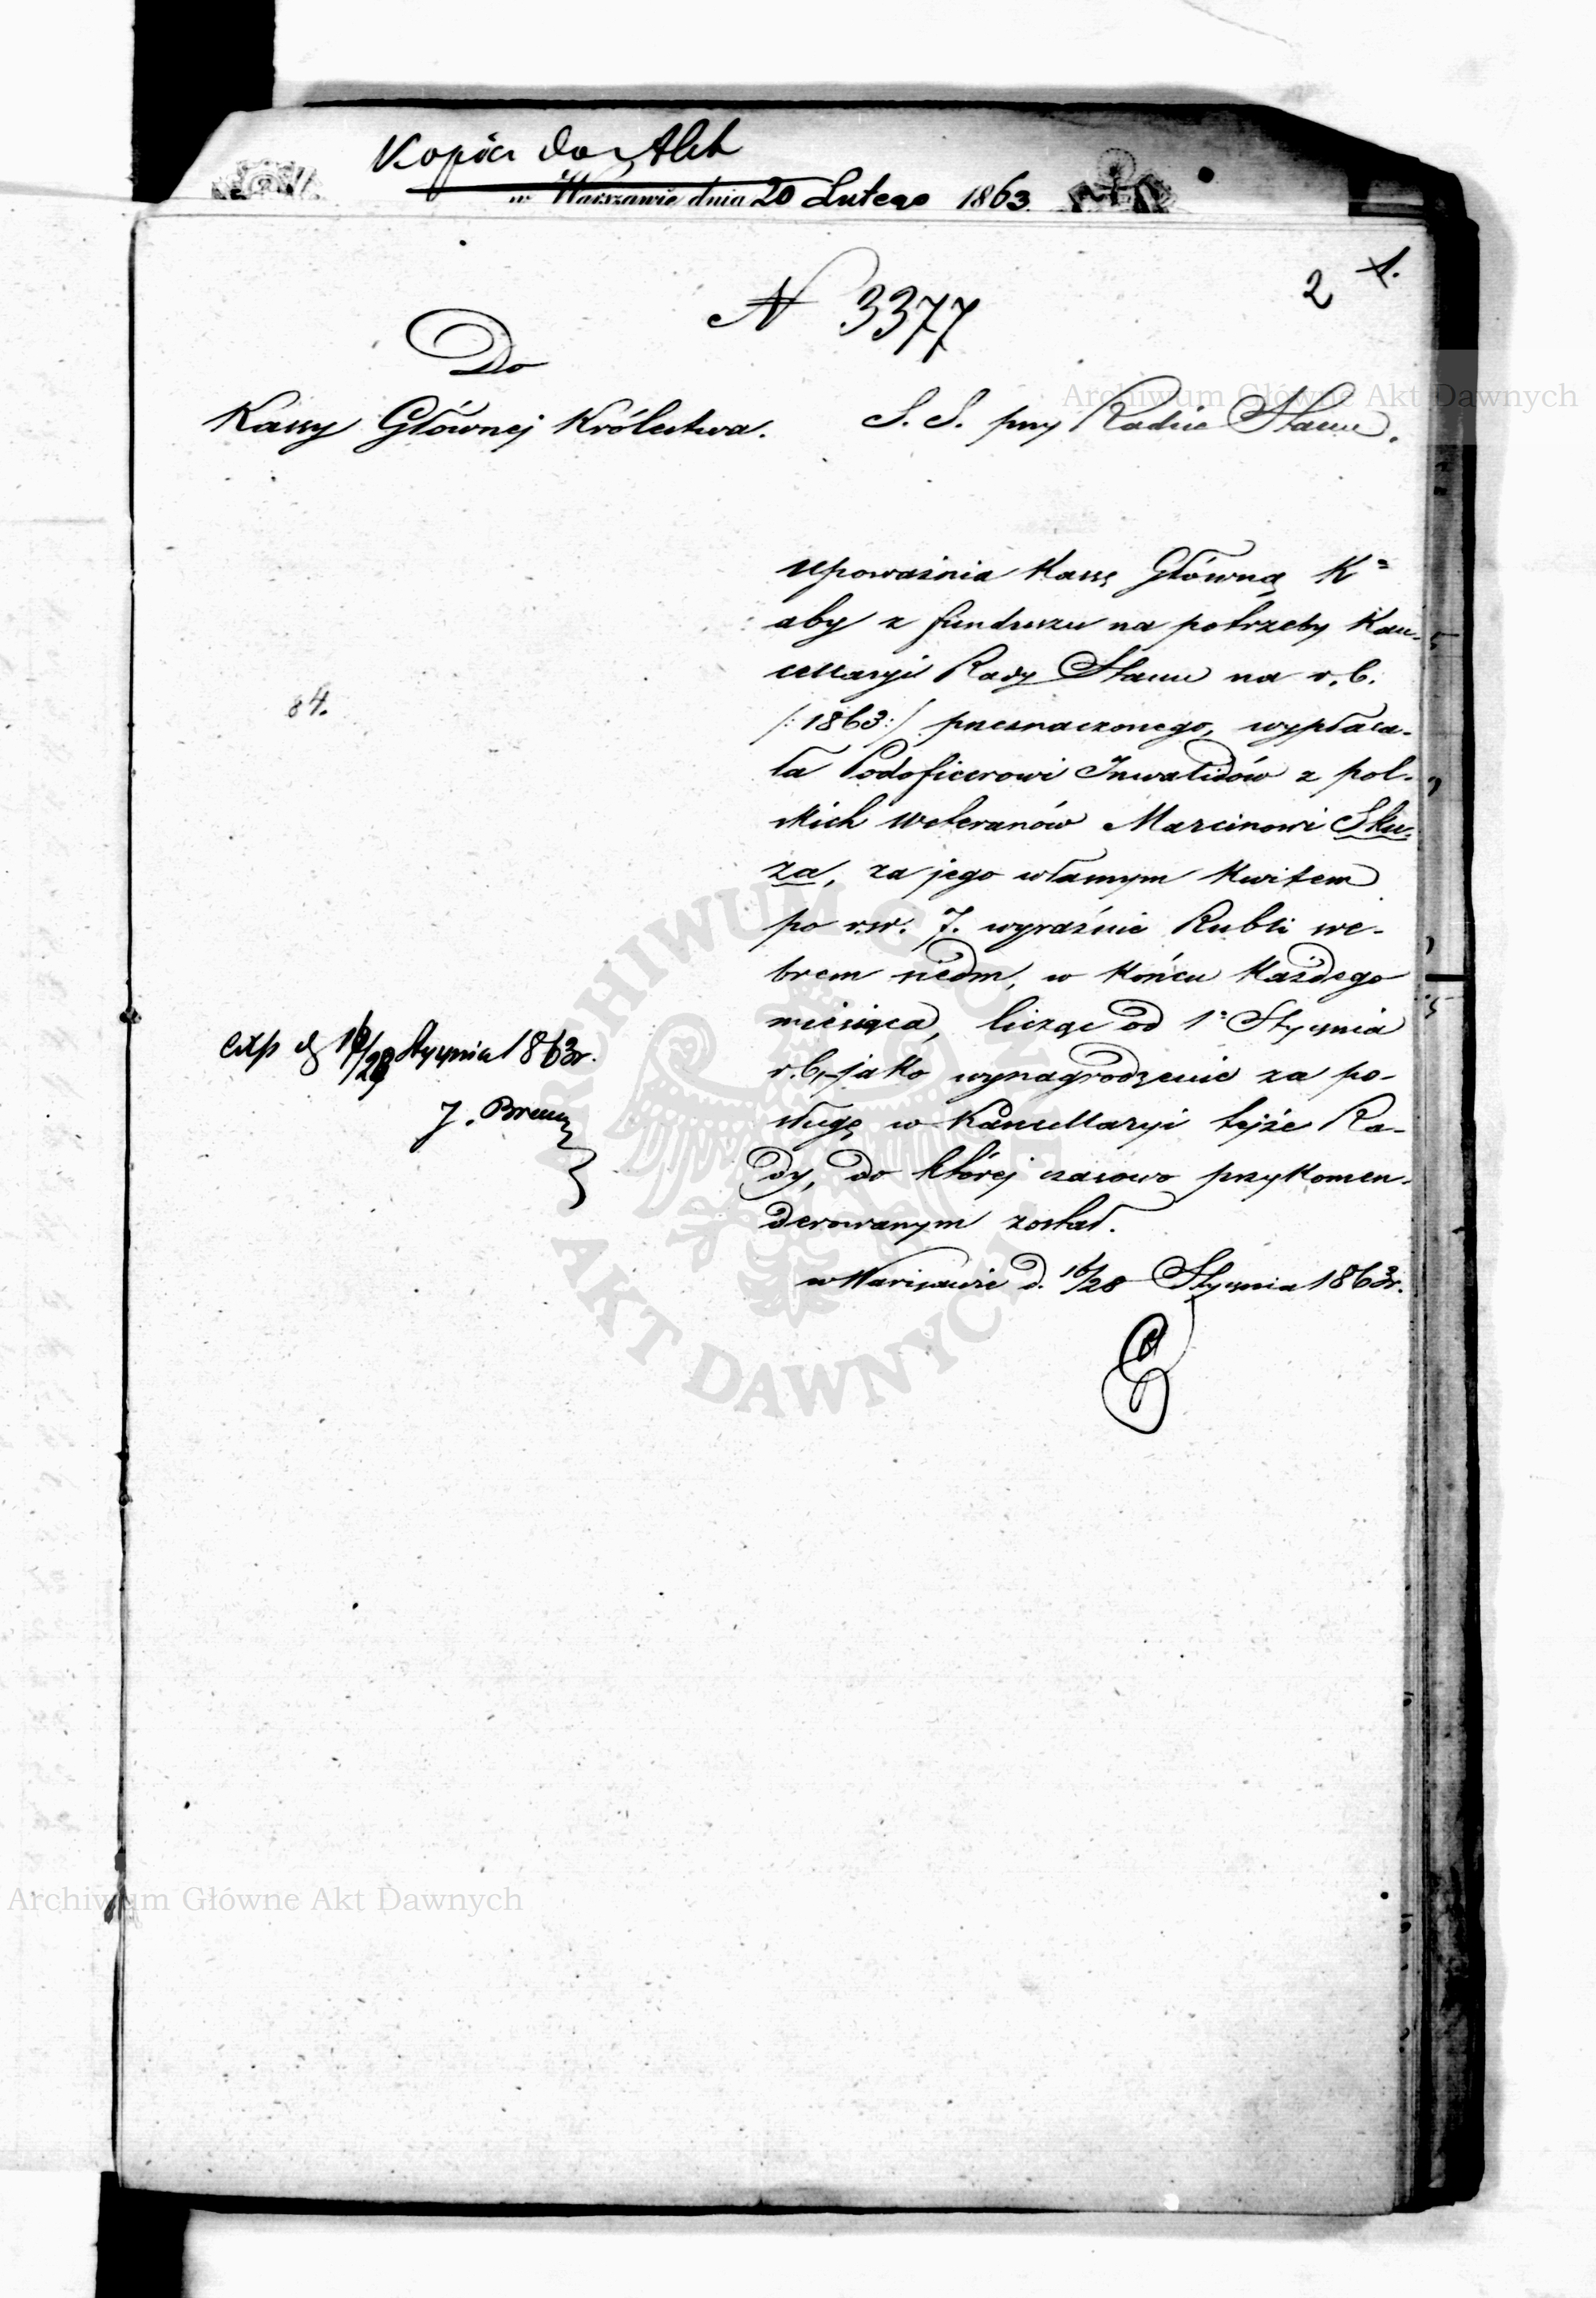 Kopia do Akt
w Warszawie dnia 20 Lutego 1863.
2 1.
N 3377
Do
Kassy Głównej Królestwa.
S. S. przy Radzie Stanu.
Upoważnia Kassę Główną K=
aby z funduszu na potrzeby Kan-
cellaryi Rady Stanu na r. b.
/:1863:/ przeznaczonego, wypłaca-
ła Podoficerowi Inwalidów z pol-
skich weteranów Marcinowi Sku-
za, za jego własnym kwitem
po r.sr. 7. wyraźnie Rubli sre-
brem siedm, w końcu każdego
miesiąca, licząc od 1= Stycznia
r.b., jako wynagrodzenie za po-
sługę w Kancellaryi tejże Ra-
dy, do której czasowo przykomen-
derowanym został.
w Warszawie d. 16/28 Stycznia 1863r.
84.
Exp d 16/28 Stycznia 1863r.
J.
Archiwum Główne Akt Dawnych
ARCHIWUM GŁÓWNE
AKT DAWNYCH
Archiwum Główne Akt Dawnych